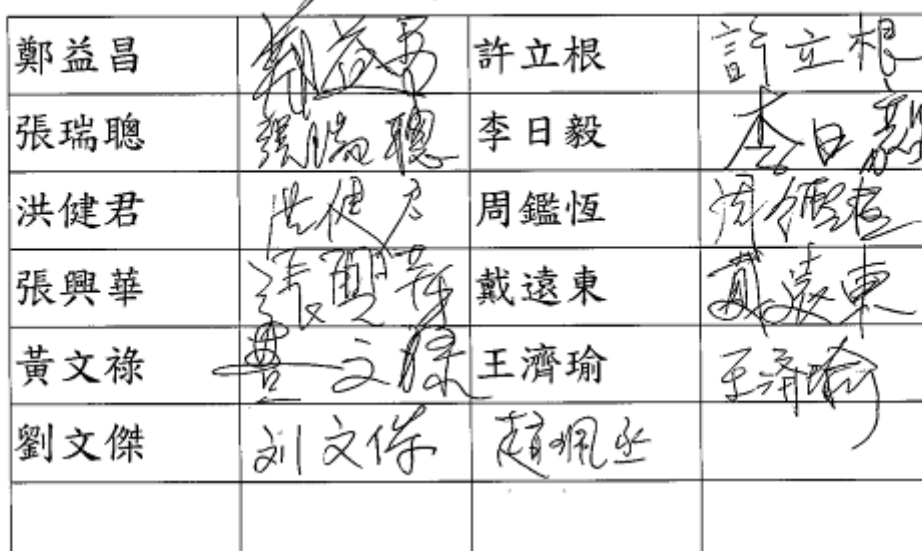 鄭益昌 鄭益昌 許立根 許立根
張瑞聰 張瑞聰 李日毅 李日毅
洪健君 洪健君 周鑑恆 周鑑恆
張興華 張興華 戴遠東 戴遠東
黃文祿 黃文祿 王濟瑜 王濟瑜
劉文傑 刘文傑 趙珮丞